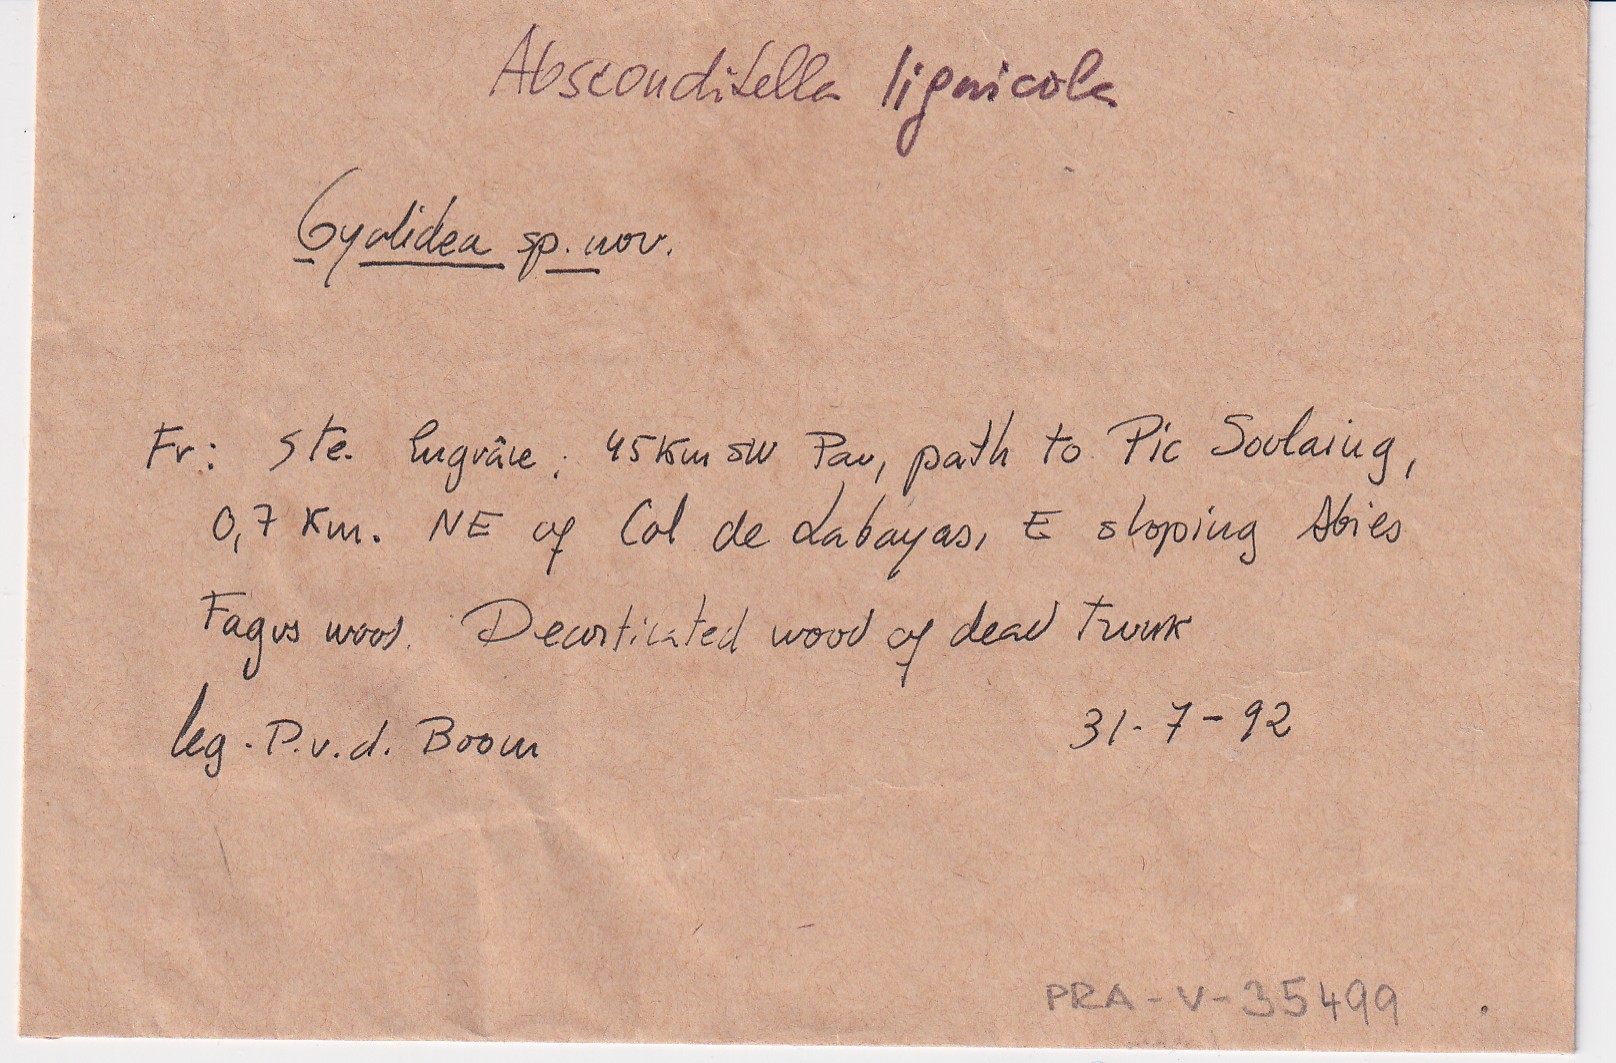 Absconditella lignicola
Gyalidea sp. nov.
Fr: Ste. Engrâce; 45Km SW Pau, path to Pic Soulaing,
0,7 Km. NE of Col de Labayas, E sloping Abies
Fagus wood. Decorticated wood of dead trunk
leg. P.v.d. Boom 31-7-92
PRA-V-35499